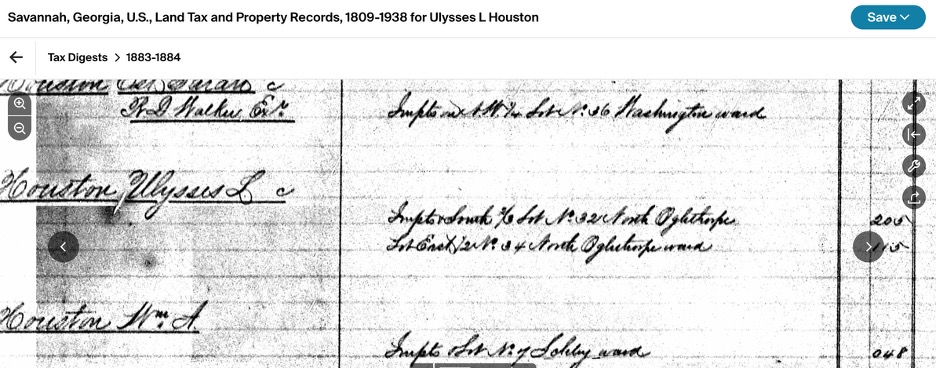 Savannah, Georgia, U.S., Land Tax and Property Records, 1809-1938 for Ulysses L Houston
Save
Tax Digests > 1883-1884
Houston Sarah c
R. D. Walker Exr.
Impts on N.W. 1/4 Lot No. 36 Washington ward
Houston, Ulysses L c
Impts & South 1/2 Lot No. 32 North Oglethorpe
205
Lot East 1/2 No. 34 North Oglethorpe ward
Houston Wm. A.
Impts & Lot No. 7 Schley ward